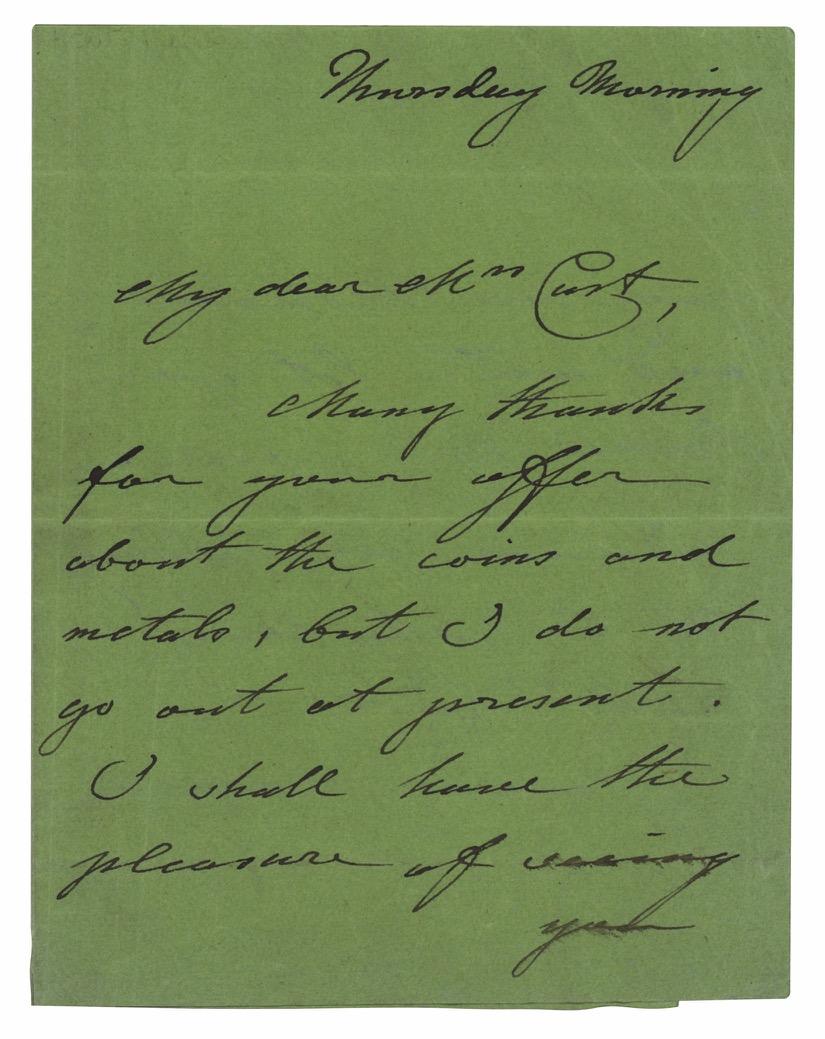 Thursday Morning
My dear Mrs Cust,
Many thanks
for your offer
about the coins and
metals, but I do not
go out at present.
I shall have the
pleasure of seeing
you